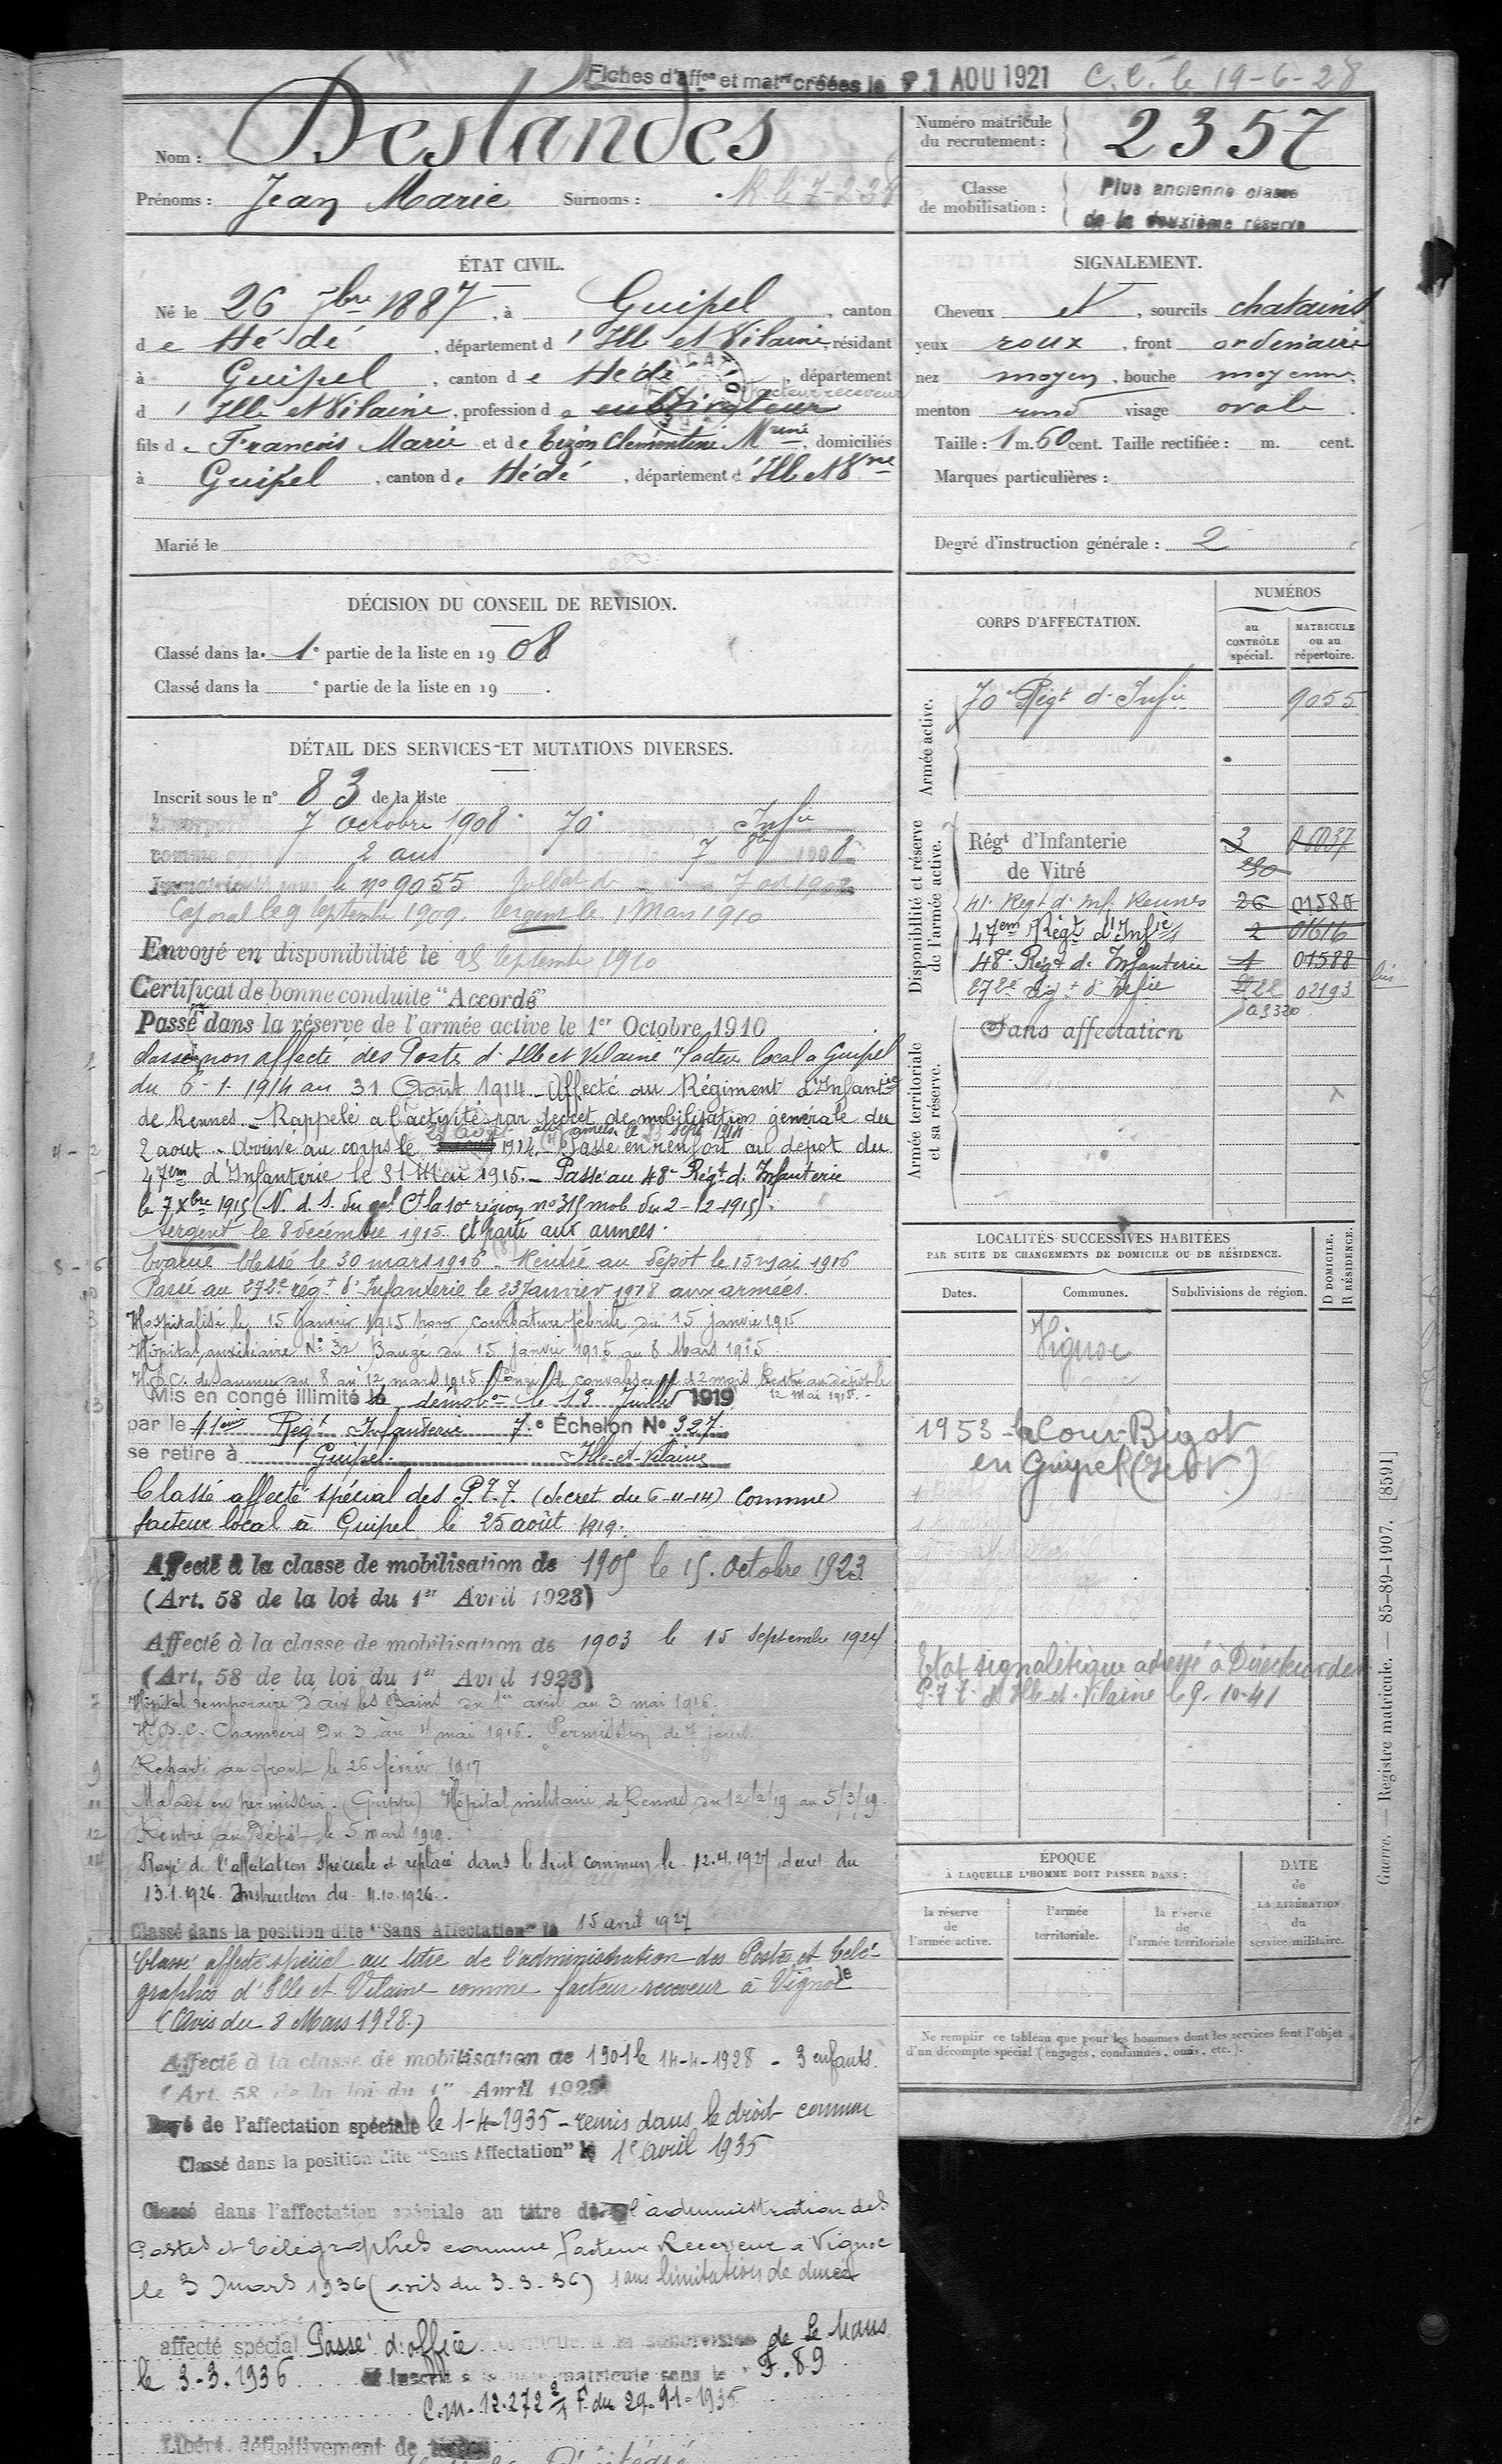 Fiches d'aff^on et mat^re créées le 1 AOU 1921 C.C. le 19-6-28
Nom : Deslandes
Prénoms : Jean Marie Surnoms : R. le 7-2-38
Numéro matricule du recrutement : 2357
Classe de mobilisation : Plus ancienne classe
de la deuxième réserve
ÉTAT CIVIL.
Né le 26 7bre 1887, à Guipel, canton
de Hédé, département d'Ille et Vilaine, résidant
à Guipel, canton de Hédé, département
facteur receveur
d'Ille et Vilaine, profession de cultivateur
fils de François Marie et de Tizon Clémentine M^rne, domiciliés
à Guipel, canton de Hédé, département d'Ille et V^ne
Marié le
SIGNALEMENT.
Cheveux et, sourcils chatains
yeux roux, front ordinaire
nez moyen, bouche moyenne
menton rond visage ovale.
Taille : 1 m. 60 cent. Taille rectifiée : m. cent.
Marques particulières :
Degré d'instruction générale : 2
DÉCISION DU CONSEIL DE REVISION.
Classé dans la 1e partie de la liste en 1908
Classé dans la e partie de la liste en 19 .
DÉTAIL DES SERVICES ET MUTATIONS DIVERSES.
Inscrit sous le n° 83 de la liste
7 octobre 1908 70e Inf^ie
2 ans 7 8bre 1908
le no 9055 soldat de 7 oct 1908
Caporal le 9 septembre 1909. Sergent le 1 Mars 1910
Envoyé en disponibilité le 25 septembre 1910
Certificat de bonne conduite "Accordé"
Passé dans la réserve de l'armée active le 1er Octobre 1910
Classé non affecté des Postes d'Ille et Vilaine "facteur local a Guipel
du 6-1-1914 au 31 Août 1914 - Affecté au Régiment d'Infant^ie
de Rennes - Rappelé a l'activité par decret de mobilisation générale du
2 aout - Arrivé au corps le 1914. - Passé en renfort au depot du
47em d'Infanterie le 31 Mai 1915. - Passé au 48e Rég^t d'Infanterie
le 7 Xbre 1915 (N. d. S. du gel Ct la 10e région no 315 mob. du 2-12-1915).
Sergent le 8 décembre 1915 et parti aux armées.
Evacué blessé le 30 mars 1916 - Rentré au dépot le 15 mai 1916
Passé au 272e rég^t d'Infanterie le 23 Janvier 1918 aux armées.
Hospitalisé le 15 janvier 1915 pour courbature fébrile du 15 janvier 1915
Hôpital auxiliaire N° 32 Baugé du 15 janvier 1915 au 8 Mars 1915
H.D.C. de Saumur du 8 au 12 mars 1915 Congé de convalescence de 2 mois Rentré au dépôt le
12 mai 1915. -
Mis en congé illimité de démob^on le 19 Juillet 1919
par le 41eme Reg^t Infanterie 7e Échelon N° 327
se retire à Guipel Ille-et-Vilaine
Classé affecté spécial des P.T.T. (decret du 6-11-14) Comme
facteur local à Guipel le 25 août 1919.
Affecté à la classe de mobilisation de 1905 le 15. Octobre 1923
(Art. 58 de la loi du 1er Avril 1923)
Affecté à la classe de mobilisation de 1903 le 15 Septembre 1924
(Art. 58 de la loi du 1er Avril 1923)
Hôpital temporaire d'aix les Bains du 1er avril au 3 mai 1916.
H.D.C. Chambery du 3 au 4 mai 1916. Permission de 7 jours.
Reparti au front le 26 février 1917
Malade en permission. (Grippe) Hôpital militaire de Rennes du 12/2/19 au 5/3/19.
Rentré au Dépôt le 5 mars 1919.
Rayé de l'affectation spéciale et replacé dans le droit commun le 12.4.1927, decret du
13.1.1926. Instruction du 11.10.1926.
Classé dans la position dite "Sans Affectation" le 15 avril 1927
Classé affecté spécial au titre de l'administration des Postes et Télé-
graphes d'Ille et Vilaine comme facteur receveur à Vignoc
(Avis du 8 Mars 1928.)
Affecté à la classe de mobilisation de 1901 le 14-4-1928 - 3 enfants.
(Art. 58 de la loi du 1er Avril 1923)
Rayé de l'affectation spéciale le 1-4-1935 - remis dans le droit commun
Classé dans la position dite "Sans Affectation" le 1e avril 1935
Classé dans l'affectation spéciale au titre de l'administration des
Postes et télégraphes comme facteur Receveur a Vignoc
le 3 mars 1936 (avis du 3.3.36) sans limitation de durée
affecté spécial Passé d'office de Le Mans
le 3-3.1936 et inscrit matricule sous le F.89
C.M. 12.272 du 29-91-1935
Libéré définitivement de
CORPS D'AFFECTATION.
NUMÉROS
au CONTRÔLE spécial.
MATRICULE ou au répertoire.
Armée active.
70e Rég^t d'Inf^ie 9055
Disponibilité et réserve de l'armée active.
Rég^t d'Infanterie 3 06037
de Vitré 230
41e Reg^t d'Inf. Rennes 26 01580
47em Rég^t d'Inf^ie 2 01616
48e Rég^t d'Infanterie 1 01588
272e rég^t d'Inf^ie 02193
Armée territoriale et sa réserve.
Sans affectation
LOCALITÉS SUCCESSIVES HABITÉES
PAR SUITE DE CHANGEMENTS DE DOMICILE OU DE RÉSIDENCE.
D DOMICILE.
R RÉSIDENCE.
Dates. Communes. Subdivisions de région.
Vignoc
1953 - La Cour Bigot
en Guipel (I et V)
Etat signalétique adressé à Directeur des
P.T.T. d'Ille-et-Vilaine le 9-10-41
ÉPOQUE
À LAQUELLE L'HOMME DOIT PASSER DANS :
la réserve de l'armée active.
l'armée territoriale.
la réserve de l'armée territoriale
DATE de LA LIBÉRATION du service militaire.
Ne remplir ce tableau que pour les hommes dont les services font l'objet
d'un décompte spécial (engagés, condamnés, omis, etc.).
Guerre. — Registre matricule. — 85-89-1907. [8591]